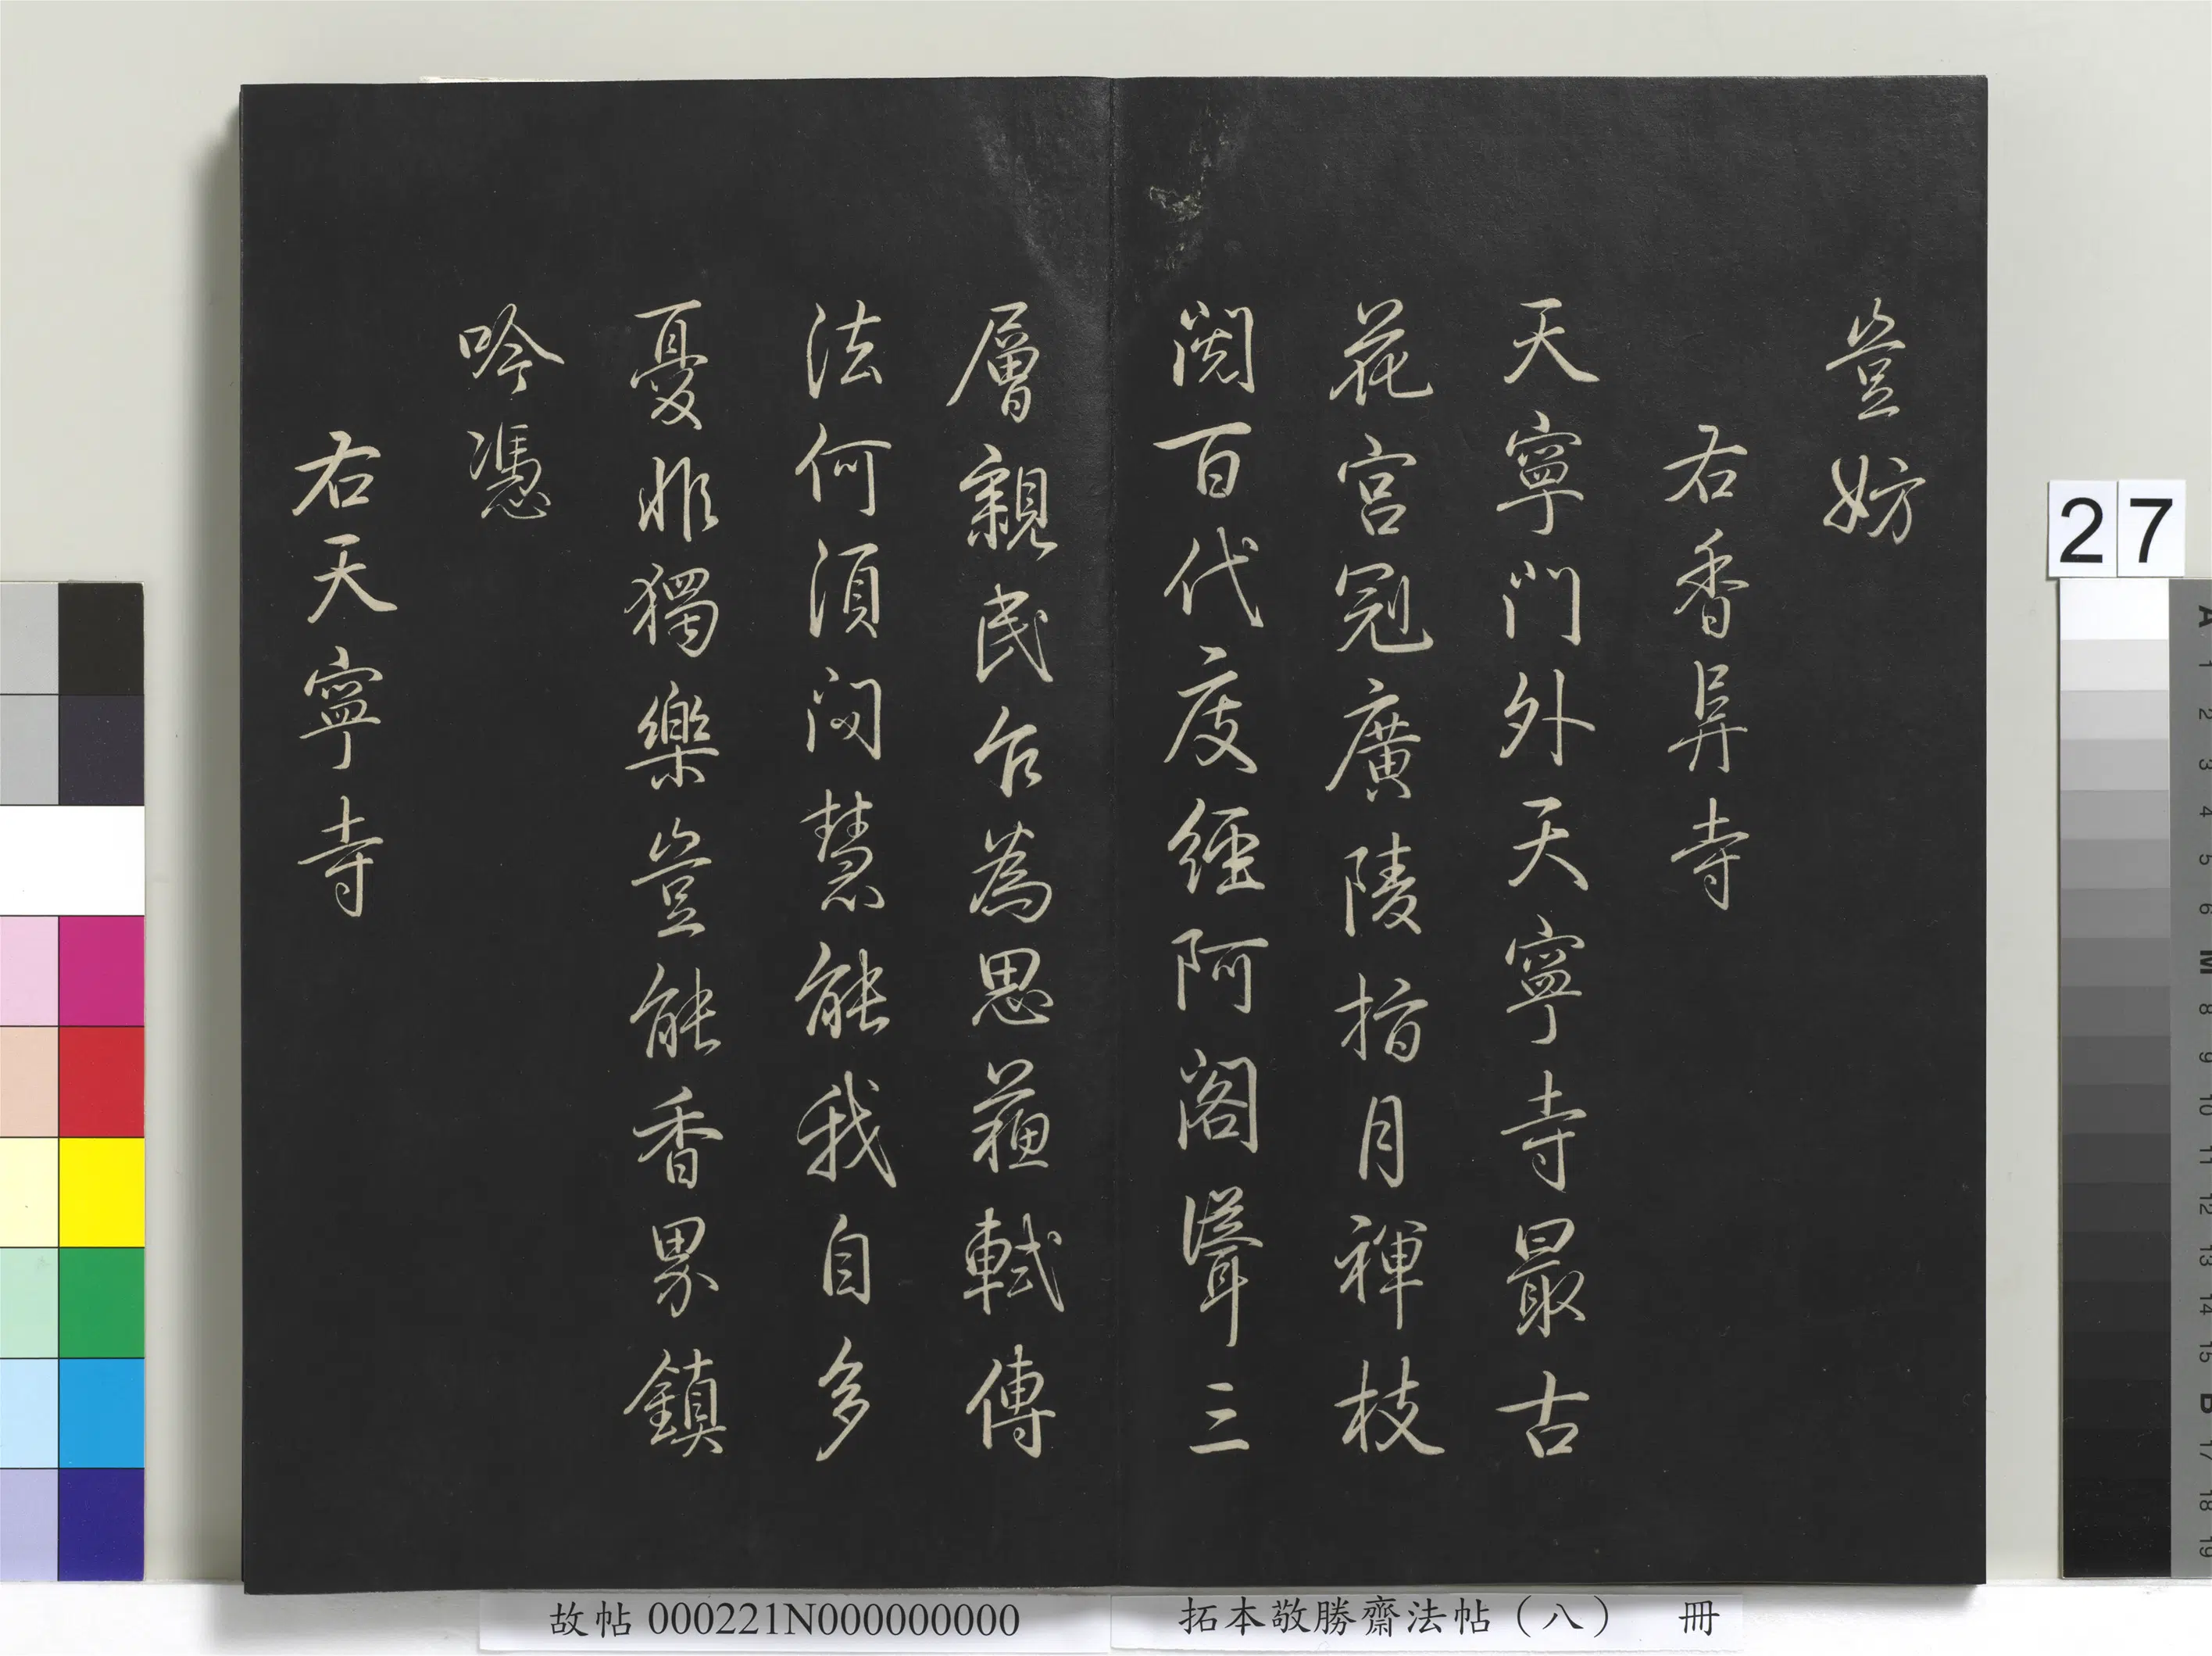 豈妨
右香阜寺
天寧門外天寧寺最古
花宮冠廣陵指月禪枝
閱百代度經阿閣聳三
層親民合為思蘇軾傳
法何須問慧能我自多
憂非獨樂豈能香界鎮
吟憑
右天寧寺
27
故帖 000221N000000000
拓本敬勝齋法帖（八） 冊
A 1 2 3 4 5 6 M 8 9 10 11 12 13 14 15 B 17 18 19